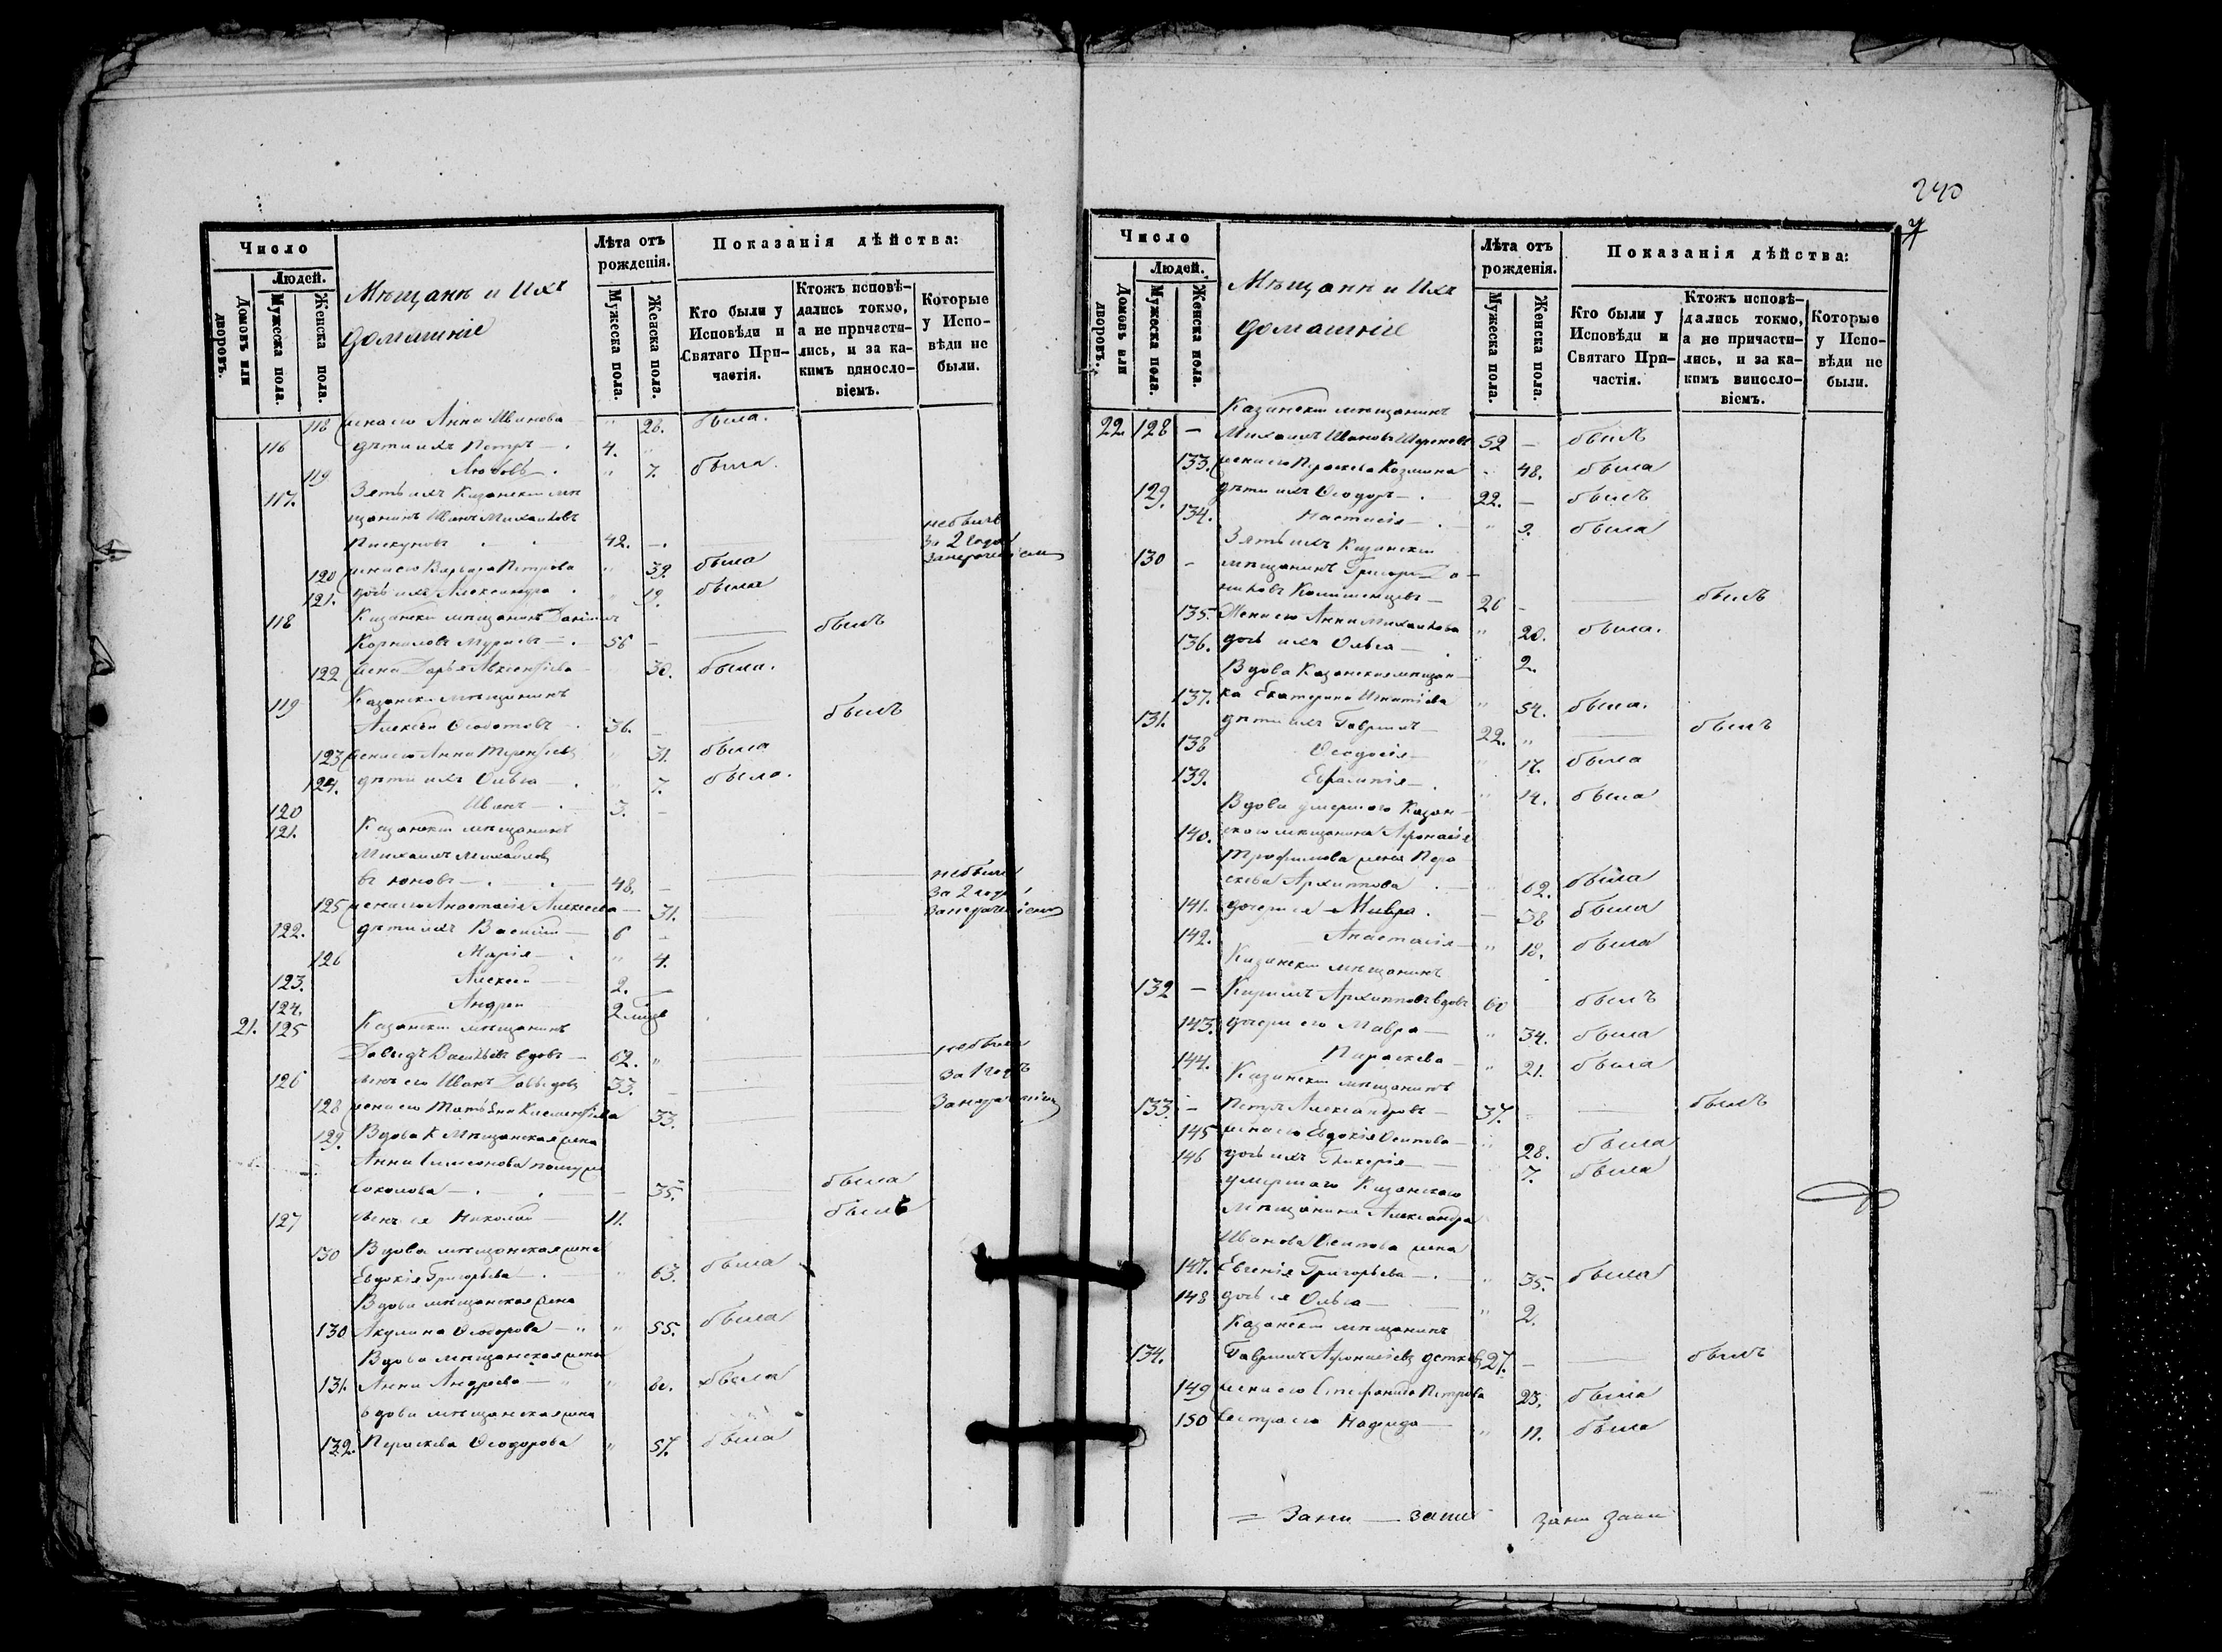 Число
Людей.
Домовъ или дворовъ.
Мужеска пола.
Женска пола.
Мѣщане и Ихъ
домашніе
Лѣта отъ рожденія.
Мужеска пола.
Женска пола.
Показанія дѣйства:
Кто были у Исповѣди и Святаго Причастія.
Ктожъ исповѣдались токмо, а не причастились, и за какимъ винословіемъ.
Которые у Исповѣди не были.
118 жена его Анна Иванова " 28. была.
116 дѣти ихъ Петръ — . 4. "
119 Любовь — . " 7. была.
117. Зять ихъ Казанскій мѣ
щанинъ Иванъ Михайловъ небылъ
42. — . за 2 года
120 жена его Варвара Петрова " 39. была
121. дочь ихъ Александра . " 19. была
118 Казанскій мѣщанинъ Даніилъ
Корниловъ — . 56 — былъ
122 жена Дарья 30. была.
119 Казанскій мѣщанинъ
Алексѣй . 36. — былъ
123 жена его Анна " 31. была
124. дѣти ихъ Ольга — . " 7. была.
120 Иванъ — . 3. —
121. Казанскій мѣщанинъ
Михаилъ Михайловъ
48. — небыли
за 2 года
125 жена его Анастасія Алексеева — 31.
122. дѣти ихъ Василій — 6 —
126 Марія — . " 4.
123. Алексѣй — 2. —
124. Андрей 2
21. 125 Казанскій мѣщанинъ
Давидъ Васильевъ вдовъ — 62. " небыли
126 сынъ его Иванъ Давыдовъ 33. — за 1 годъ
128 жена его Татьяна 33.
129. Вдова К Мѣщанская жена
Анна Симеонова
Соколова — . . — 35. была
127 сынъ ея Николай — 11. былъ
130 Вдова мѣщанская жена
Евдокія Григорьева — . " 63. была
Вдова мѣщанская жена
130 Акулина Ѳеодорова — " " 55. была
Вдова мѣщанская жена
131. Анна Андреева — " " 60. была
вдова мѣщанская жена
132. Параскева Ѳеодорова " 57. была
240
Число
Людей.
Домовъ или дворовъ.
Мужеска пола.
Женска пола.
Мѣщане и Ихъ
домашніе
Лѣта отъ рожденія.
Мужеска пола.
Женска пола.
Показанія дѣйства:
Кто были у Исповѣди и Святаго Причастія.
Ктожъ исповѣдались токмо, а не причастились, и за какимъ винословіемъ.
Которые у Исповѣди не были.
Казанскій мѣщанинъ
22 128 — Михаилъ Ивановъ 52 — былъ
133. жена его Параскева Козмина . 48. была
129. дѣти ихъ Ѳеодоръ — . 22. — былъ
134. Настасія — . " 9. была
Зять ихъ Казанскій
130 — мѣщанинъ Григорій
26 — былъ
135. Жена его Анна Михайлова " 20. была.
136. дочь ихъ Ольга — . 2.
Вдова Казанская мѣщан—
137. ка Екатерина Игнатіева " 54. была.
131. дѣти ихъ Гавріилъ — 22. " былъ
138 Ѳеодосія — " 17. была
139. Евлампія — . " 14. была
Вдова умершаго Казан—
140. скаго мѣщанина Афонасія
Трофимова жена Пара
скева Архипова . " 62. была
141. дочери ея Мавра . — 38 была
142. Анастасія — " 18. была
Казанскій мѣщанинъ
132 — Кирилъ Архиповъ вдовъ 60 былъ
143. дочери его Мавра — " 34. была
144. Параскева — " 21. была
Казанскій мѣщанинъ
133. — Петръ Александровъ — 37. былъ
145 жена его Евдокія Осипова — " 28. была
146 дочь ихъ Гликерія — 7. была
умершаго Казанскаго
Мѣщанина Александра
Иванова Осипова жена
147. Евгенія Григорьева — . " 35. была
148 дочь ея Ольга — " 2.
Казанскій мѣщанинъ
134. Гавріилъ 27. — былъ
149 жена его Стефанида Петрова 23. была
150 Сестра его Надежда — " 11. была